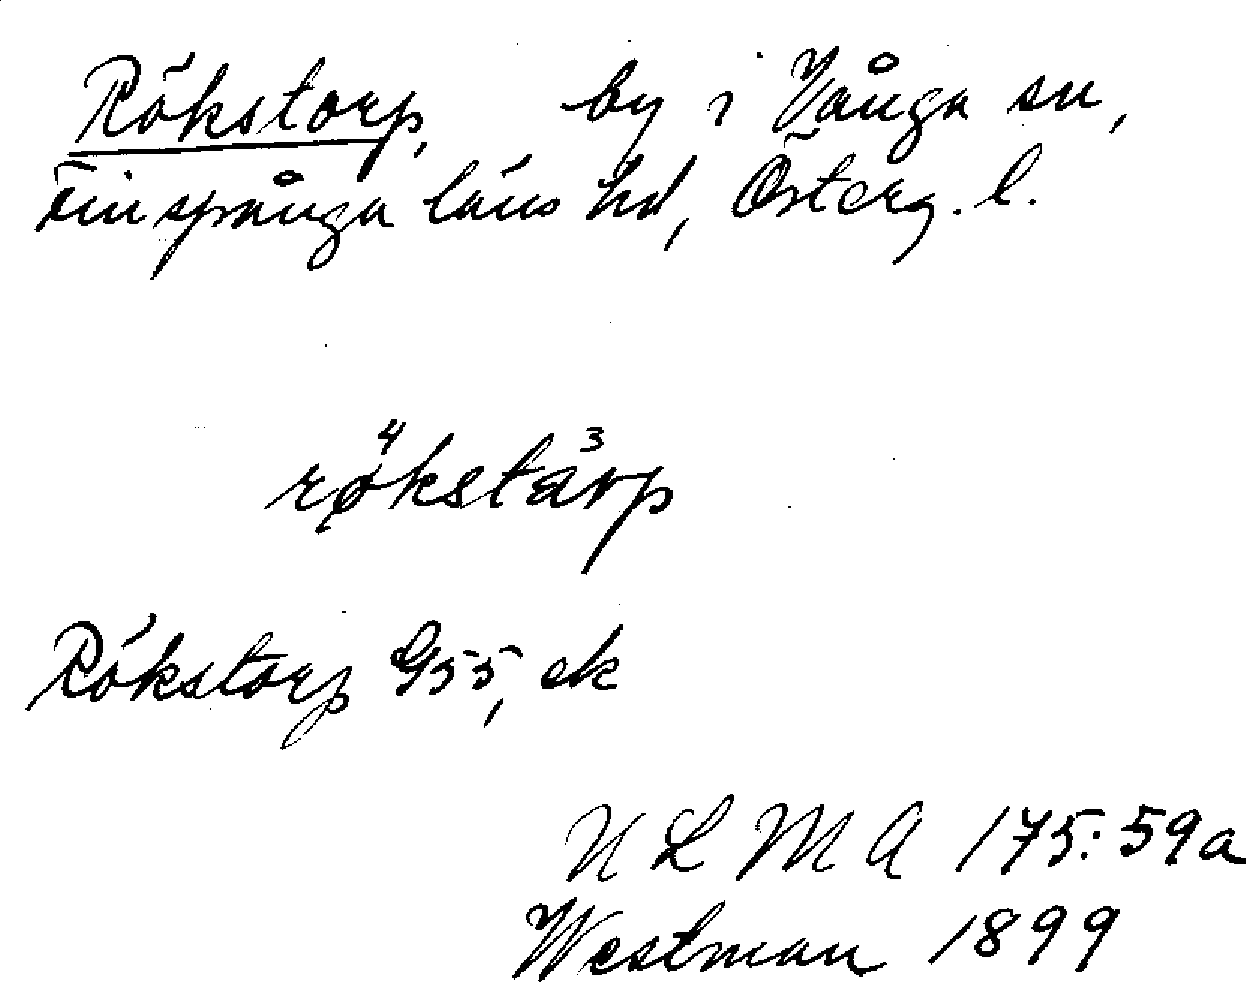 Rökstorp, by i Vånga sn,
Finspånga läns hd, Österg. l.
rø̨⁴kstå³rp
Rökstorp G55, ek
ULMA 175:59a
Westman 1899